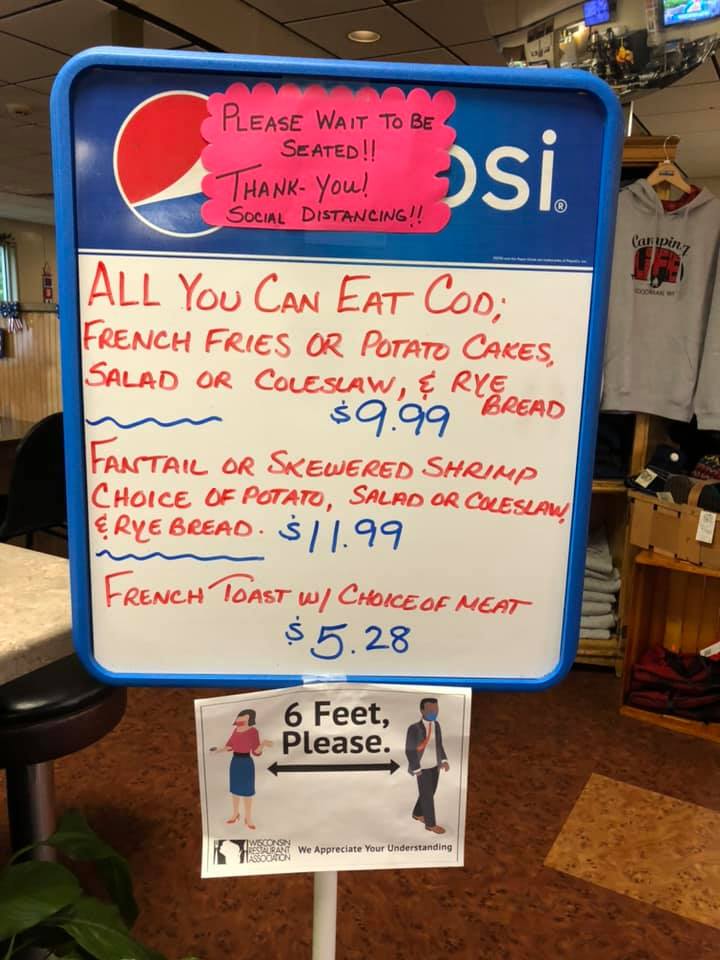 PLEASE WAIT TO BE
SEATED!!
THANK-YOU!
SOCIAL DISTANCING!!
psi®
ALL YOU CAN EAT COD;
FRENCH FRIES OR POTATO CAKES,
SALAD OR COLESLAW, & RYE
BREAD
$9.99
FANTAIL OR SKEWERED SHRIMP
CHOICE OF POTATO, SALAD OR COLESLAW,
& RYE BREAD. $11.99
FRENCH TOAST W/ CHOICE OF MEAT
$5.28
6 Feet,
Please.
WISCONSIN
RESTAURANT
ASSOCIATION
We Appreciate Your Understanding
Camping
LIFE